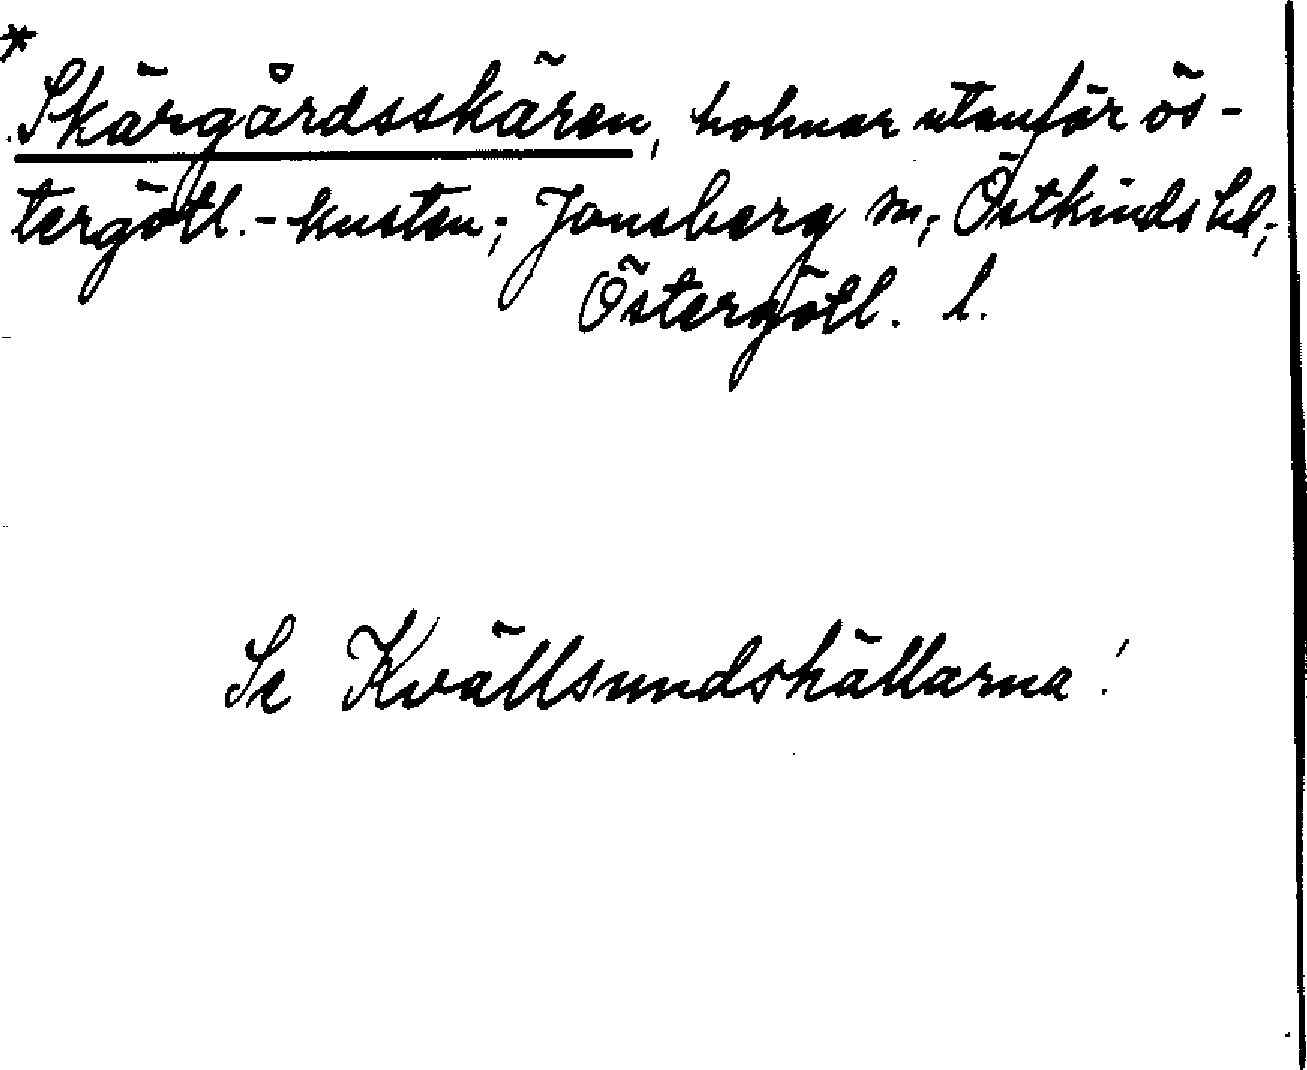 *
Skärgårdsskären, holmar utanför ös-
tergötl.-kusten; Jonsberg sn; Östkinds hd;
Östergötl. l.
Se Kvällsundshällarna!